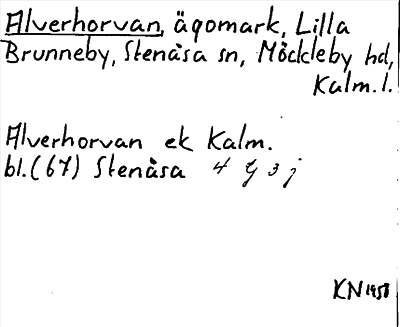 Alverhorvan, ägomark, Lilla
Brunneby, Stenåsa sn, Möckleby hd,
Kalm. l.
Alverhorvan ek Kalm.
bl. (67) Stenåsa 4 G 3 j
KN 1958